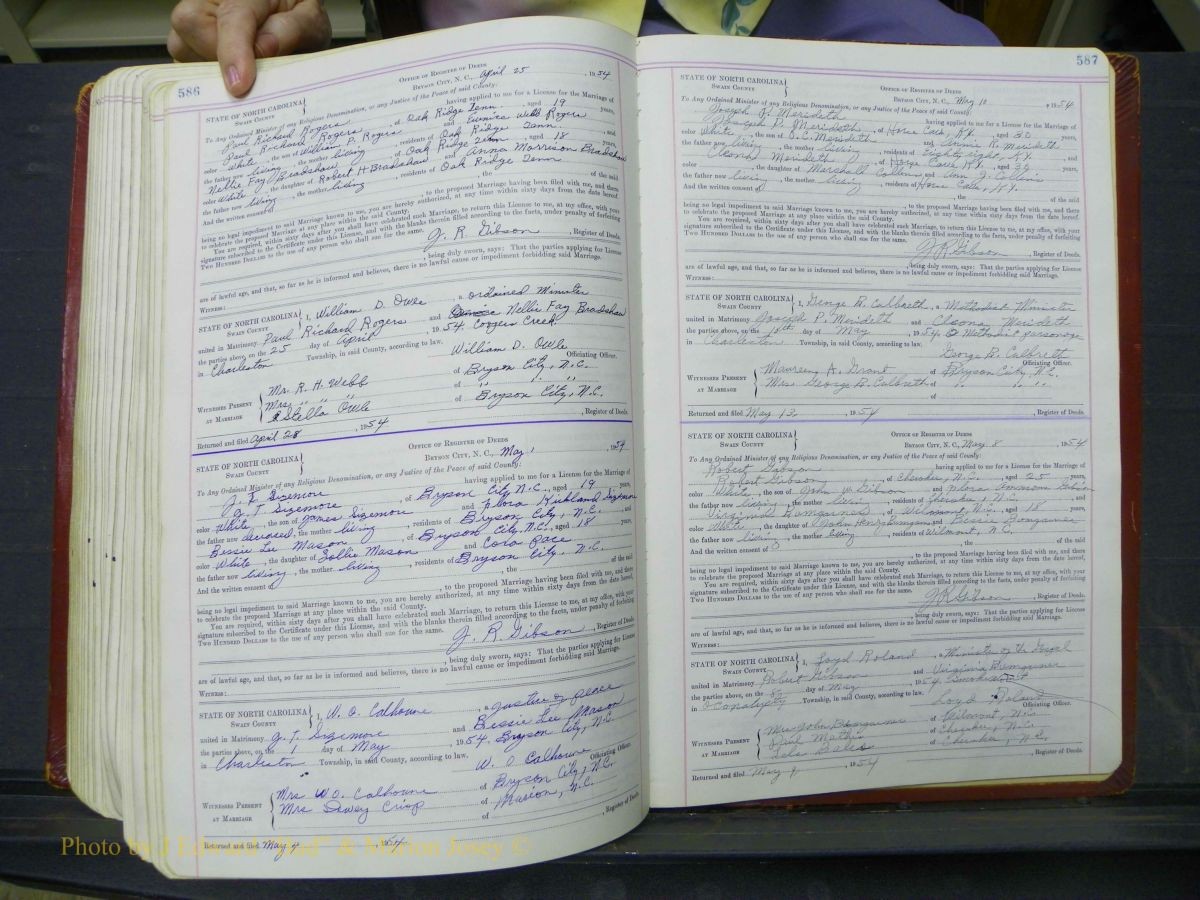 586
OFFICE OF REGISTER OF DEEDS
STATE OF NORTH CAROLINA
SWAIN COUNTY
BRYSON CITY, N. C., April 25, 1954
To Any Ordained Minister of any Religious Denomination, or any Justice of the Peace of said County:
Paul Richard Rogers having applied to me for a License for the Marriage of
Paul Richard Rogers, of Oak Ridge Tenn, aged 19 years,
color White, the son of William P. Rogers and Eunice Webb Rogers
the father now living, the mother living, residents of Oak Ridge Tenn. and
Nellie Fay Bradshaw, of Oak Ridge Tenn aged 18 years,
color White, the daughter of Robert H Bradshaw and Anna Morrison Bradshaw
the father now living, the mother living, residents of Oak Ridge Tenn
And the written consent of , the of the said
, to the proposed Marriage having been filed with me, and there
being no legal impediment to said Marriage known to me, you are hereby authorized, at any time within sixty days from the date hereof,
to celebrate the proposed Marriage at any place within the said County.
You are required, within sixty days after you shall have celebrated such Marriage, to return this License to me, at my office, with your
signature subscribed to the Certificate under this License, and with the blanks therein filled according to the facts, under penalty of forfeiting
TWO HUNDRED DOLLARS to the use of any person who shall sue for the same.
J. R. Gibson, Register of Deeds.
, being duly sworn, says: That the parties applying for License
are of lawful age, and that, so far as he is informed and believes, there is no lawful cause or impediment forbidding said Marriage.
WITNESS:
STATE OF NORTH CAROLINA
SWAIN COUNTY
I, William D. Owle, a ordained Minister
united in Matrimony Paul Richard Rogers and Nellie Fay Bradshaw
the parties above, on the 25 day of April, 1954 Coopers Creek
in Charleston Township, in said County, according to law.
William D. Owle
Officiating Officer.
WITNESSES PRESENT AT MARRIAGE
Mr. R. H. Webb of Bryson City, N.C.
Mrs. " " " of " " "
Stella Owle of Bryson City, N.C.
Returned and filed April 28, 1954 , Register of Deeds.
OFFICE OF REGISTER OF DEEDS
STATE OF NORTH CAROLINA
SWAIN COUNTY
BRYSON CITY, N. C., May 1 1954
To Any Ordained Minister of any Religious Denomination, or any Justice of the Peace of said County:
J. T. Sizemore having applied to me for a License for the Marriage of
G. T. Sizemore, of Bryson City, N.C., aged 19 years,
color White, the son of James Sizemore and Flora Kirkland Sizemore
the father now devorsed, the mother living, residents of Bryson City, N.C. and
Bessie Lee Mason of Bryson City, N.C., aged 18 years,
color White, the daughter of Zollie Mason and Cora Pace
the father now living, the mother living, residents of Bryson City, N.C.
And the written consent of , the of the said
, to the proposed Marriage having been filed with me, and there
being no legal impediment to said Marriage known to me, you are hereby authorized, at any time within sixty days from the date hereof,
to celebrate the proposed Marriage at any place within the said County.
You are required, within sixty days after you shall have celebrated such Marriage, to return this License to me, at my office, with your
signature subscribed to the Certificate under this License, and with the blanks therein filled according to the facts, under penalty of forfeiting
TWO HUNDRED DOLLARS to the use of any person who shall sue for the same.
J. R. Gibson, Register of Deeds.
, being duly sworn, says: That the parties applying for License
are of lawful age, and that, so far as he is informed and believes, there is no lawful cause or impediment forbidding said Marriage.
WITNESS:
STATE OF NORTH CAROLINA
SWAIN COUNTY
I, W. O. Calhoune, a Justice of peace
united in Matrimony G. T. Sizemore and Bessie Lee Mason
the parties above, on the 1 day of May, 1954, Bryson City,
in Charleston Township, in said County, according to law. N.C.
W. O Calhoune
Officiating Officer.
WITNESSES PRESENT AT MARRIAGE
Mrs W.O. Calhoune of Bryson City, N.C.
Mrs Dewey Crisp of Marion, N.C.
of
Returned and filed May 4 1954 , Register of Deeds.
587
STATE OF NORTH CAROLINA
SWAIN COUNTY
OFFICE OF REGISTER OF DEEDS
BRYSON CITY, N. C., May 10, 1954
To Any Ordained Minister of any Religious Denomination, or any Justice of the Peace of said County:
Joseph P. Merideth having applied to me for a License for the Marriage of
Joseph P. Merideth, of Horse Cave, Ky., aged 30 years,
color White, the son of Merideth and Annie R. Merideth
the father now living, the mother living, residents of Eighty eight, Ky. and
Cleona Merideth of Horse Cave, Ky. aged years,
color , the daughter of Marshall Collins and Ann J. Collins
the father now living, the mother living, residents of Horse Cave, Ky.
And the written consent of , the of the said
, to the proposed Marriage having been filed with me, and there
being no legal impediment to said Marriage known to me, you are hereby authorized, at any time within sixty days from the date hereof,
to celebrate the proposed Marriage at any place within the said County.
You are required, within sixty days after you shall have celebrated such Marriage, to return this License to me, at my office, with your
signature subscribed to the Certificate under this License, and with the blanks therein filled according to the facts, under penalty of forfeiting
TWO HUNDRED DOLLARS to the use of any person who shall sue for the same.
J R Gibson, Register of Deeds.
, being duly sworn, says: That the parties applying for License
are of lawful age, and that, so far as he is informed and believes, there is no lawful cause or impediment forbidding said Marriage.
WITNESS:
STATE OF NORTH CAROLINA
SWAIN COUNTY
I, George B. Culbreth, a Methodist Minister
united in Matrimony Joseph P. Merideth and Cleona Merideth
the parties above, on the 10th day of May 1954, Methodist parsonage
in Charleston Township, in said County, according to law.
George B. Culbreth
Officiating Officer.
WITNESSES PRESENT AT MARRIAGE
Maureen A. Grant of Bryson City, N.C.
Mrs. George B. Culbreth of " " "
Returned and filed May 12, 1954 , Register of Deeds.
STATE OF NORTH CAROLINA
SWAIN COUNTY
OFFICE OF REGISTER OF DEEDS
BRYSON CITY, N. C., May 8, 1954
To Any Ordained Minister of any Religious Denomination, or any Justice of the Peace of said County:
Robert Gibson having applied to me for a License for the Marriage of
Robert Gibson, of Cherokee, N.C., aged 25 years,
color White, the son of John W Gibson and Ammons Gibson
the father now living, the mother , residents of Cherokee, N.C. and
Virginia Bumgarner of Wilmont, N.C. aged 18 years,
color White, the daughter of John Henry Bumgarner and Bessie Bumgarner
the father now living, the mother living, residents of Wilmont, N.C.
And the written consent of , the of the said
, to the proposed Marriage having been filed with me, and there
being no legal impediment to said Marriage known to me, you are hereby authorized, at any time within sixty days from the date hereof,
to celebrate the proposed Marriage at any place within the said County.
You are required, within sixty days after you shall have celebrated such Marriage, to return this License to me, at my office, with your
signature subscribed to the Certificate under this License, and with the blanks therein filled according to the facts, under penalty of forfeiting
TWO HUNDRED DOLLARS to the use of any person who shall sue for the same.
J R Gibson, Register of Deeds.
, being duly sworn, says: That the parties applying for License
are of lawful age, and that, so far as he is informed and believes, there is no lawful cause or impediment forbidding said Marriage.
WITNESS:
STATE OF NORTH CAROLINA
SWAIN COUNTY
I, Loyd Roland, a Minister of the Gospel
united in Matrimony Robert Gibson and Virginia Bumgarner
the parties above, on the 8 day of May 1954,
in Oconalufty Township, in said County, according to law.
Loyd Roland
Officiating Officer.
WITNESSES PRESENT AT MARRIAGE
Mrs John Bumgarner of Wilmont, N.C.
Mathis of Cherokee, N.C.
of Cherokee, N.C.
Returned and filed May 9, 1954 , Register of Deeds.
Photo by & Marion Josey ©